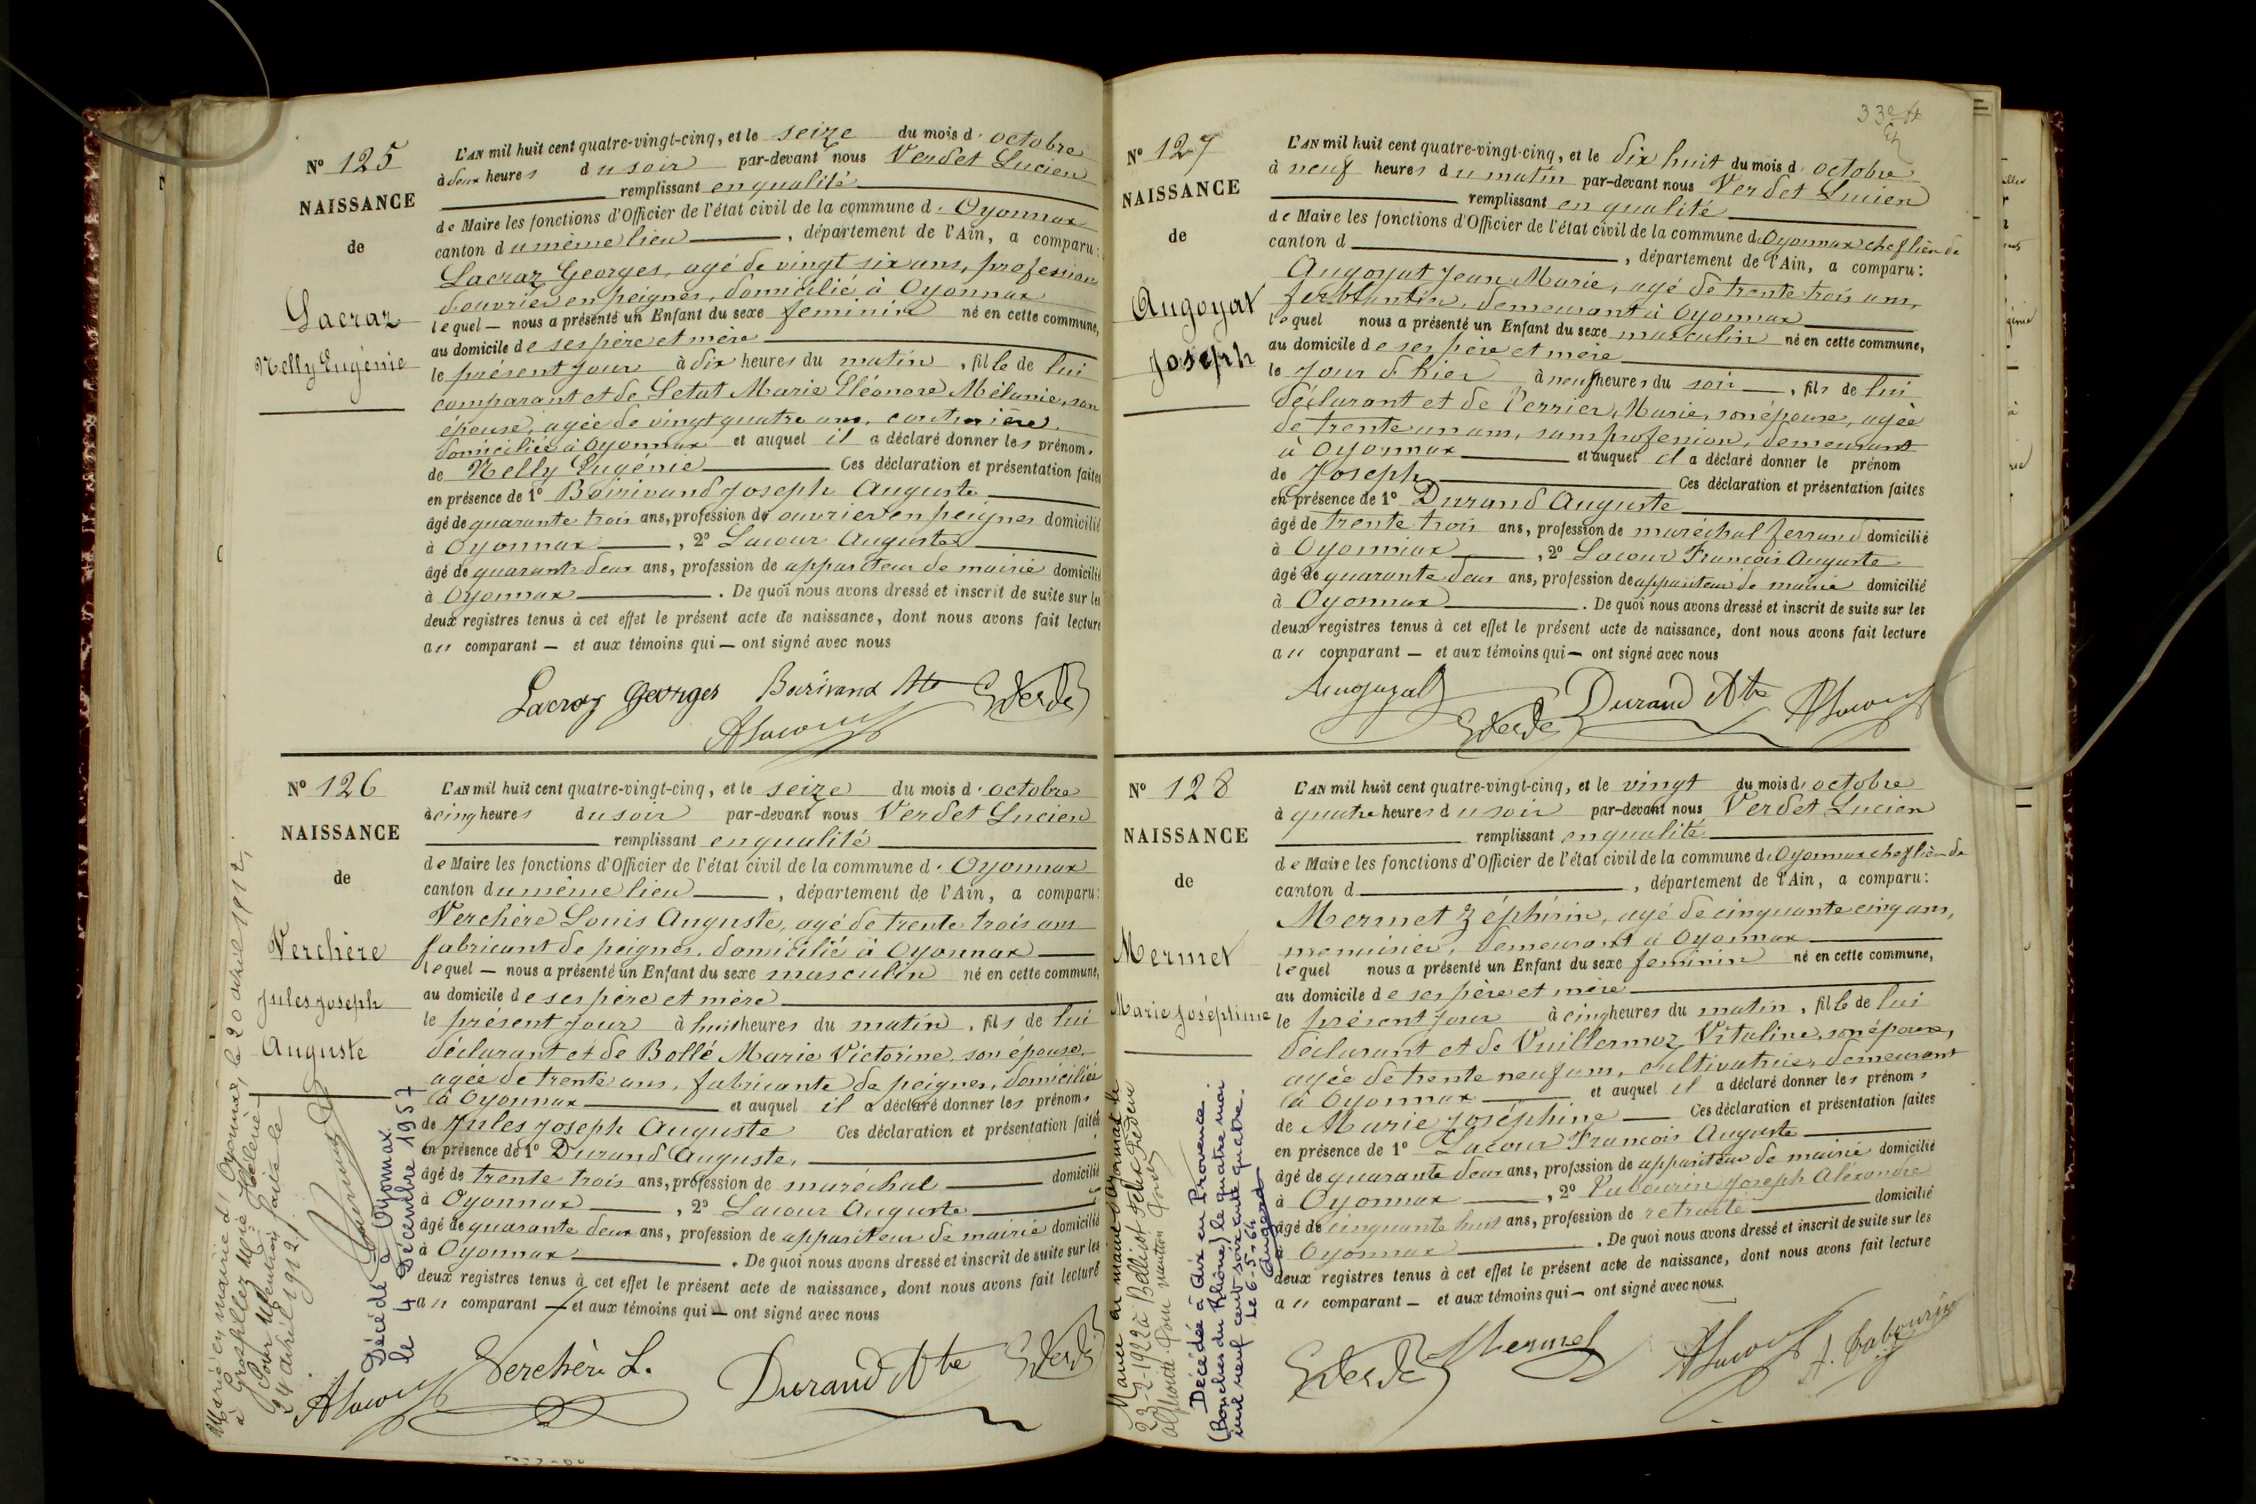 N° 125
NAISSANCE
de
Lacraz
Nelly Eugénie
L'AN mil huit cent quatre-vingt-cinq, et le seize du mois d' octobre
à deux heures du soir par-devant nous Verdet Lucien
remplissant en qualité
de Maire les fonctions d'Officier de l'état civil de la commune d' Oyonnax
canton du même lieu, département de l'Ain, a comparu:
Lacraz Georges, agé de vingt six ans, profession
d'ouvrier en peignes, domicilié à Oyonnax
lequel — nous a présenté un Enfant du sexe feminin né en cette commune,
au domicile de ses père et mère
le présent jour à dix heures du matin, fille de lui
comparant et de Letat Marie Eléonore Mélanie, son
épouse, agée de vingt quatre ans, couturière,
domiciliée à Oyonnax et auquel il a déclaré donner les prénoms
de Nelly Eugénie Ces déclaration et présentation faites
en présence de 1° Boirivand Joseph Auguste
âgé de quarante trois ans, profession d' ouvrier en peignes domicilié
à Oyonnax, 2° Lacour Auguste
âgé de quarante deux ans, profession de appariteur de mairie domicilié
à Oyonnax. De quoi nous avons dressé et inscrit de suite sur les
deux registres tenus à cet effet le présent acte de naissance, dont nous avons fait lecture
au comparant — et aux témoins qui — ont signé avec nous
Lacraz Georges Boirivand Ate Verdet
ALacour
N° 126
NAISSANCE
de
Verchère
Jules Joseph
Auguste
L'AN mil huit cent quatre-vingt-cinq, et le seize du mois d' octobre
à cinq heures du soir par-devant nous Verdet Lucien
remplissant en qualité
de Maire les fonctions d'Officier de l'état civil de la commune d' Oyonnax
canton du même lieu, département de l'Ain, a comparu:
Verchère Louis Auguste, agé de trente trois ans
fabricant de peignes, domicilié à Oyonnax
lequel — nous a présenté un Enfant du sexe masculin né en cette commune,
au domicile de ses père et mère
le présent jour à huit heures du matin, fils de lui
déclarant et de Bollé Marie Victorine, son épouse,
agée de trente ans, fabricante de peignes, domiciliée
à Oyonnax et auquel il a déclaré donner les prénoms
de Jules Joseph Auguste Ces déclaration et présentation faites
en présence de 1° Durand Auguste,
âgé de trente trois ans, profession de maréchal domicilié
à Oyonnax, 2° Lacour Auguste
âgé de quarante deux ans, profession de appariteur de mairie domicilié
à Oyonnax. De quoi nous avons dressé et inscrit de suite sur les
deux registres tenus à cet effet le présent acte de naissance, dont nous avons fait lecture
au comparant — et aux témoins qui — ont signé avec nous
ALacour Verchère L. Durand Ate Verdet
Marié en mairie d'Oyonnax, le 20 avril 1912,
à Grospellez Marie Hélène
Pour Mention faite le
24 avril 1912
Décédé à Oyonnax
le 4 Décembre 1957
N° 127
NAISSANCE
de
Augoyat
Joseph
L'AN mil huit cent quatre-vingt-cinq, et le dix huit du mois d' octobre
à neuf heures du matin par-devant nous Verdet Lucien
remplissant en qualité
de Maire les fonctions d'Officier de l'état civil de la commune d' Oyonnax chef lieu de
canton d, département de l'Ain, a comparu:
Augoyat Jean Marie, agé de trente trois ans,
ferblantier, demeurant à Oyonnax
lequel nous a présenté un Enfant du sexe masculin né en cette commune,
au domicile de ses père et mère
le jour d'hier à neuf heures du soir, fils de lui
déclarant et de Perrier Marie, son épouse, agée
de trente un ans, sans profession, demeurant
à Oyonnax et auquel il a déclaré donner le prénom
de Joseph Ces déclaration et présentation faites
en présence de 1° Durand Auguste
âgé de trente trois ans, profession de maréchal ferrand domicilié
à Oyonnax, 2° Lacour François Auguste
âgé de quarante deux ans, profession de appariteur de mairie domicilié
à Oyonnax. De quoi nous avons dressé et inscrit de suite sur les
deux registres tenus à cet effet le présent acte de naissance, dont nous avons fait lecture
au comparant — et aux témoins qui — ont signé avec nous
Augoyat Verdet Durand Ate ALacour
N° 128
NAISSANCE
de
Mermet
Marie Joséphine
L'AN mil huit cent quatre-vingt-cinq, et le vingt du mois d' octobre
à quatre heures du soir par-devant nous Verdet Lucien
remplissant en qualité
de Maire les fonctions d'Officier de l'état civil de la commune d' Oyonnax chef lieu de
canton d, département de l'Ain, a comparu:
Mermet Zéphirin, agé de cinquante cinq ans,
menuisier, demeurant à Oyonnax
lequel nous a présenté un Enfant du sexe feminin né en cette commune,
au domicile de ses père et mère
le présent jour à cinq heures du matin, fille de lui
déclarant et de Vuillermoz Vitaline, son épouse,
agée de trente neuf ans, cultivatrice, demeurant
à Oyonnax et auquel il a déclaré donner les prénoms
de Marie Joséphine Ces déclaration et présentation faites
en présence de 1° Lacour François Auguste
âgé de quarante deux ans, profession de appariteur de mairie domicilié
à Oyonnax, 2° Tabourin Joseph Alexandre
âgé de cinquante huit ans, profession de retraité domicilié
à Oyonnax. De quoi nous avons dressé et inscrit de suite sur les
deux registres tenus à cet effet le présent acte de naissance, dont nous avons fait lecture
au comparant — et aux témoins qui — ont signé avec nous.
Verdet Mermet ALacour J. Tabourin
Mariée en mairie d'Oyonnax le
23-2-1922 à Bellicot Felix
Pour mention
Décédée à Aix en Provence
(Bouches du Rhône) le quatre mai
mil neuf cent soixante quatre.
Le 6-5-64